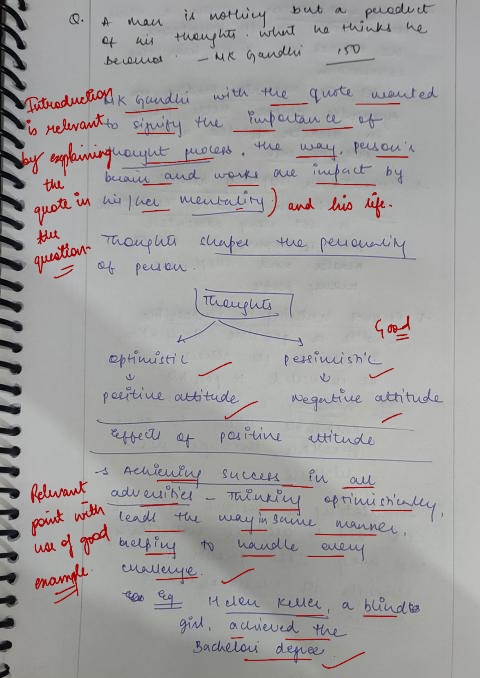 Q. A man is nothing but a product
of his thoughts. What he thinks he
becomes. - MK Gandhi 150
Introduction
is relevant
by explaining
the
quote in
the
question.
MK Gandhi with the quote wanted
to signify the importance of
thought process. The way, person's
brain and works are impact by
his/her mentality) and his life.
Thoughts shapes the personality
of person.
Thoughts
Good
optimistic pessimistic
positive attitude Negative attitude
Effects of positive attitude
Relevant
point with
use of good
example.
→ Achieving success in all
adversities - Thinking optimistically,
leads the way in same manner,
helping to handle every
challenge.
Eg Helen Keller, a blind
girl, achieved the
Bachelors degree